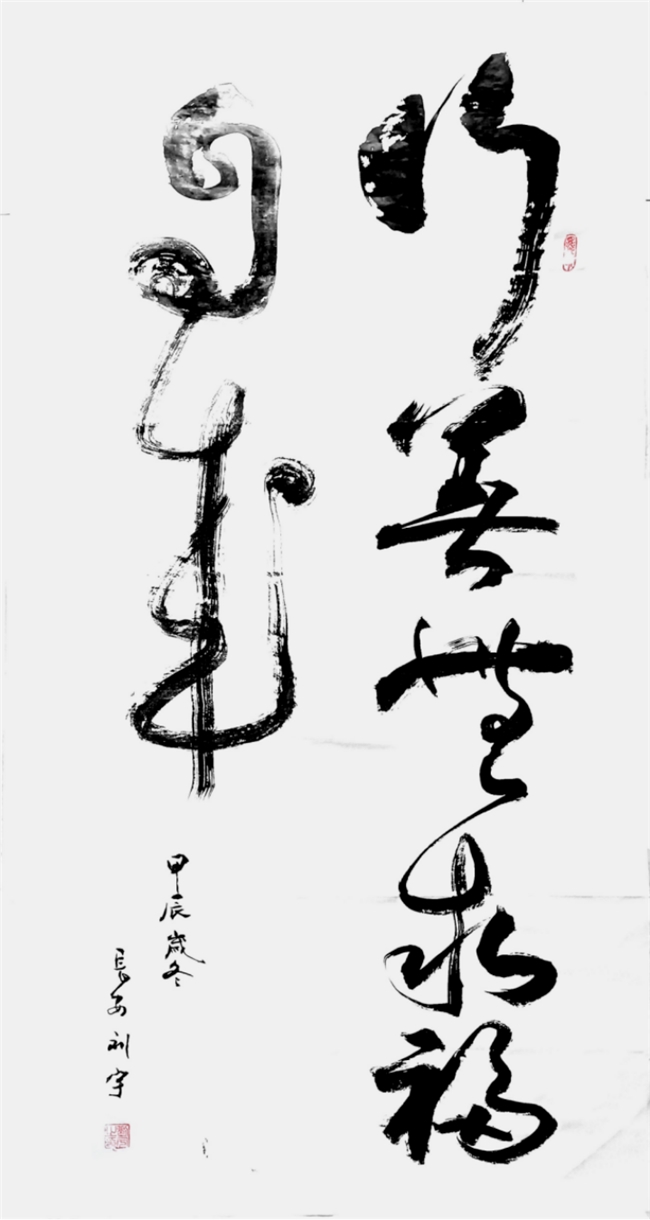 行善無求福
自来
甲辰歲冬
長安利宇